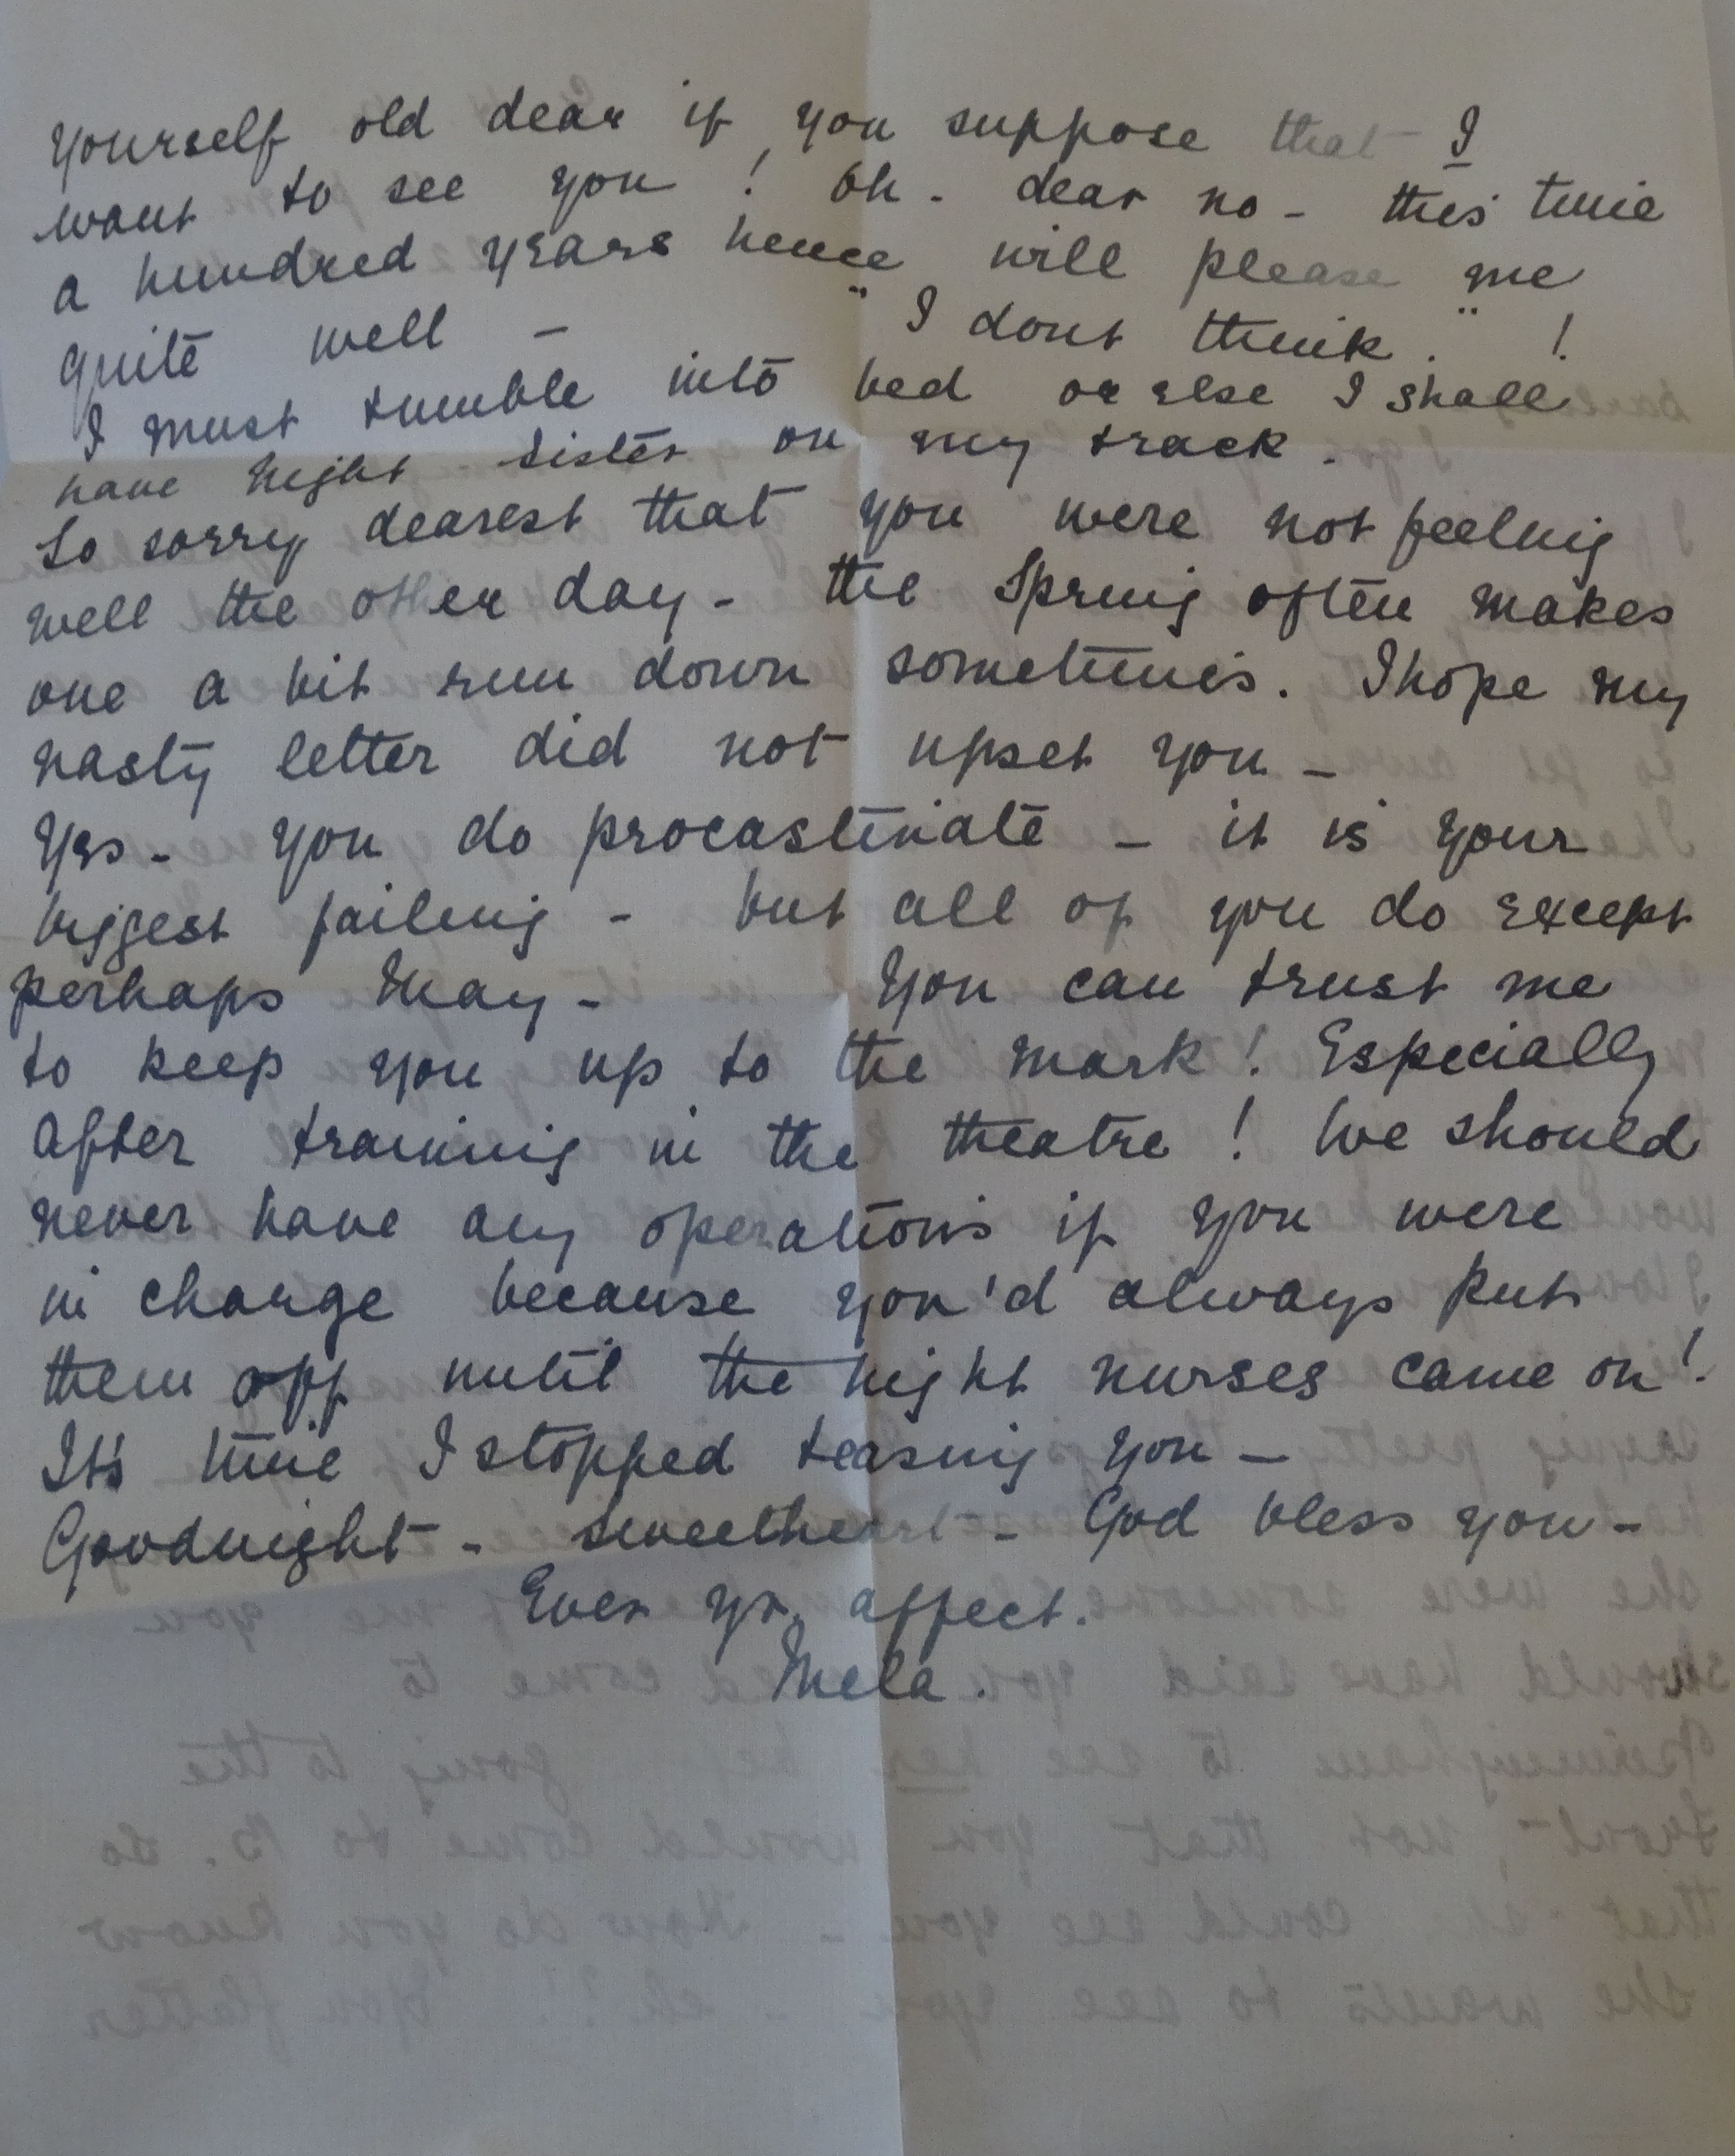 yourself old dear if you suppose that I
want to see you! Oh - dear no - this time
a hundred years hence will please me
quite well - "I dont think." !
I must tumble into bed or else I shall
have Night Sister on my track.
So sorry dearest that you were not feeling
well the other day - the Spring often makes
one a bit run down sometimes. I hope my
nasty letter did not upset you -
Yes - you do procastinate - it is your
biggest failing - but all of you do except
perhaps May - You can trust me
to keep you up to the mark! Especially
after training in the theatre! We should
never have any operations if you were
in charge because you'd always put
them off until the night nurses came on!
It's time I stopped teasing you -
Goodnight - sweetheart - God bless you -
Ever yr. affect.
Mela.